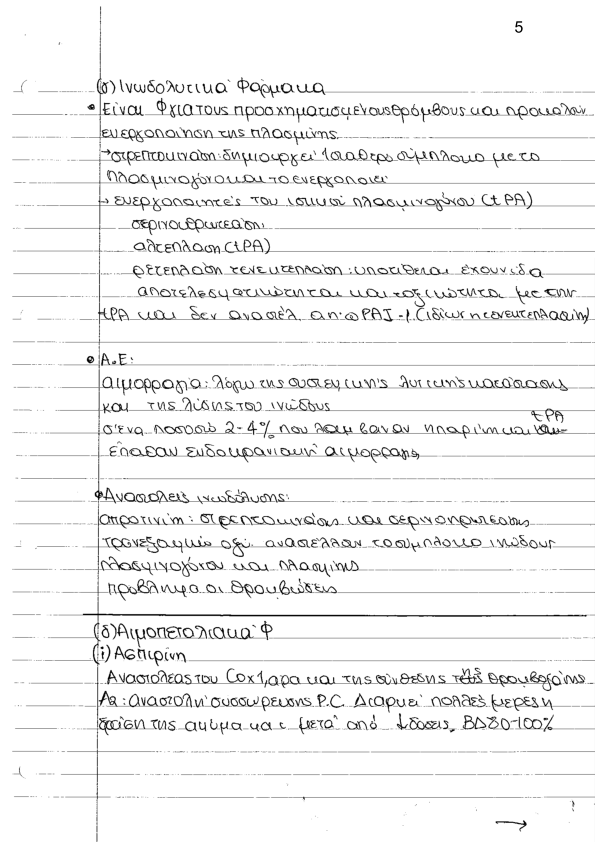 5
(γ) Ινωδολυτικά Φάρμακα
• Είναι Φ για τους προσχηματισμένους θρόμβους και προκαλούν
ενεργοποίηση της πλασμίνης.
→ στρεπτοκινάση: δημιουργεί 1 σταθερό σύμπλοκο με το
πλασμινογόνο και το ενεργοποιεί
→ ενεργοποιητές του ιστικού πλασμινογόνου (t PA)
σερινοπρωτεάση
αλτεπλάση (tPA)
ρετεπλάση τενεκτεπλάση: υποτίθεται έχουν ίδια
αποτελεσματικότητα και τοξικότητα με την
tPA και δεν αναστέλ. απ' το PAI-1 (ιδίως η τενεκτεπλάση)
• Α.Ε:
αιμορραγία: λόγω της συστεμικής λυτικής κατάστασης
και της λύσης του ινώδους
σ'ένα ποσοστό 2-4% που λάμβαναν ηπαρίνη και tPA
έπαθαν ενδοκρανιακή αιμορραγία
• Αναστολείς ινωδόλυσης:
απροτινίνη: στρεπτοκινάσης και σερινοπρωτεάσης
τρανεξαμικό οξύ: αναστέλλουν το σύμπλοκο ινώδους
πλασμινογόνου και πλασμίνης
πρόβλημα οι θρομβώσεις
(δ) Αιμοπεταλιακά Φ
(i) Ασπιρίνη
Αναστολέας του Cox1, άρα και της σύνθεσης της θρομβοξάνης
A2: αναστολή συσσώρευσης P.C. Διαρκεί πολλές μέρες η
δράση της ακόμα και μετά από 1 δόσεις. ΒΔ 80-100%
→